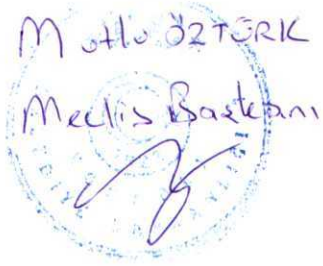 Mutlu ÖZTÜRK
Meclis Başkanı